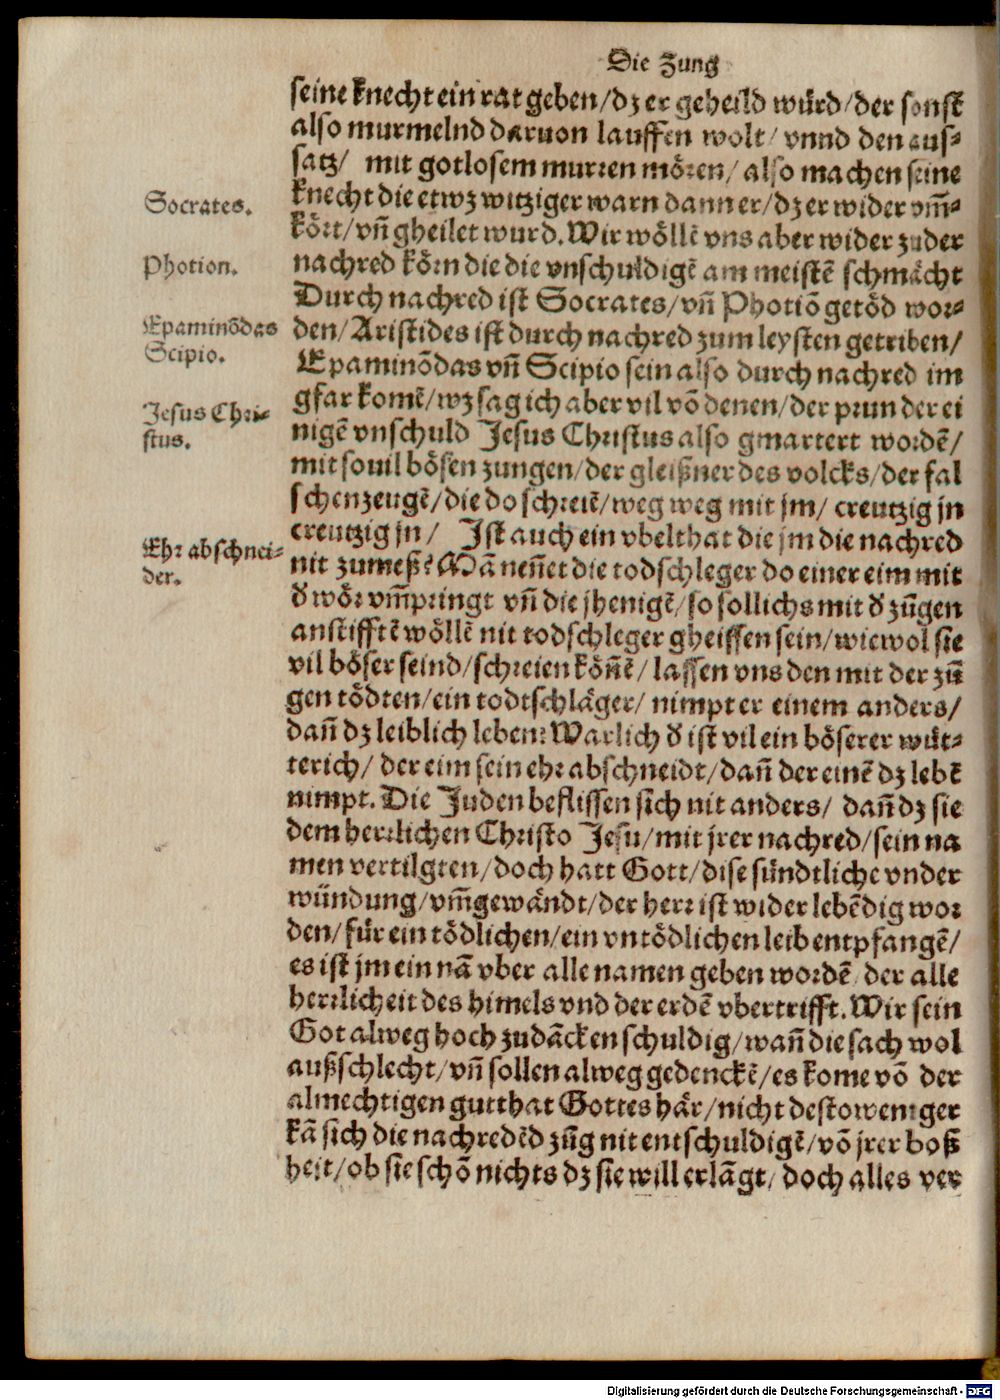 Die Zung
seine knecht ein rat geben/dz er geheild würd/der sonst
also murmelnd daruon lauffen wolt/ vnnd den aus-
satz/ mit gotlosem murren mören/ also machen seine
knecht die etwz witziger warn dann er/dz er wider vm̃-
kört/vñ gheilet wurd. Wir wöllē vns aber wider zu der
nachred körn die die vnschuldigē am meistē schmächt
Durch nachred ist Socrates/vñ Photiō getöd wor-
den/Aristides ist durch nachred zum leysten getriben/
Epaminōdas vñ Scipio sein also durch nachred im
gfar komē/wz sag ich aber vil vō denen/der prun der ei
nigē vnschuld Jesus Christus also gmartert wordē/
mit souil bösen zungen/der gleißner des volcks/der fal
schen zeugē/die do schreiē/weg weg mit jm/ creutzig jn
creutzig jn/ Jst auch ein vbelthat die jm die nachred
nit zumeß? Mā neñet die todschleger do einer eim mit
d̕ wör vm̃pringt vñ die jhenigē/so sollichs mit d̕ zūgen
anstifftē wöllē nit todschleger gheissen sein/wiewol sie
vil böser seind/schreien köñē/ lassen vns den mit der zū
gen tödten/ein todtschläger/ nimpt er einem anders/
dañ dz leiblich leben? Warlich d̕ ist vil ein böserer wüt-
terich/ der eim sein ehr abschneidt/dañ der einē dz lebē
nimpt. Die Juden beflissen sich nit anders/ dañ dz sie
dem herrlichen Christo Jesu/mit jrer nachred/sein na
men vertilgten/doch hatt Gott/dise sündtliche vnder
wündung/vm̃gewändt/der herr ist wider lebēdig wor
den/für ein tödlichen/ein vntödlichen leib entpfangē/
es ist jm ein nā vber alle namen geben wordē/der alle
herrlicheit des himels vnd der erdē vbertrifft. Wir sein
Got alweg hoch zudācken schuldig/wañ die sach wol
außschlecht/vñ sollen alweg gedenckē/es kome vō der
almechtigen gutthat Gottes här/nicht destoweniger
kā sich die nachredēd zūg nit entschuldigē/vō jrer boß
heit/ob sie schō nichts dz sie will erlāgt/doch alles ver
Socrates.
Photion.
Epaminōdas
Scipio.
Jesus Chri-
stus.
Ehr abschnei-
der.
Digitalisierung gefördert durch die Deutsche Forschungsgemeinschaft - DFG